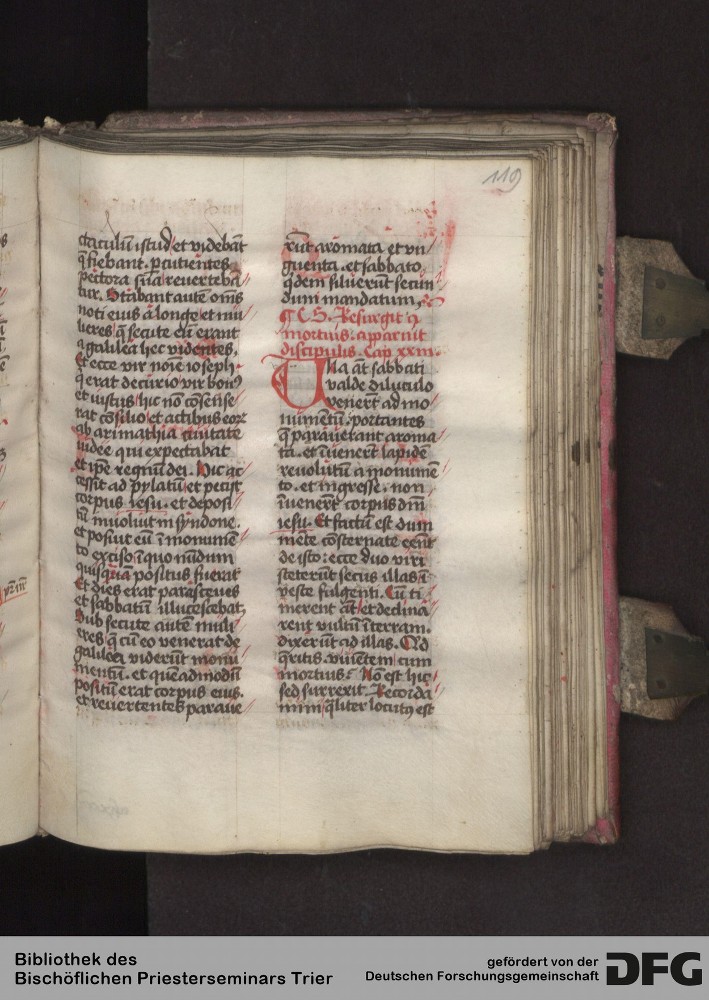 119
ctaculũ istud et videbãt
q̃ fiebant. ꝑcutientes
pectora sua reverteba
tur. Stabant autẽ om̃s
noti eius a longe et mu
lieres q̃ secute eũ erant
a galilea hec videntes.
Et ecce vir noĩe ioseph
q̃ erat decurio vir bonꝰ
et iustus hic nõ cõsense
rat cõsilio et actibus eoꝝ
ab arimathia civitate
iudee qui expectabat
et ip̃e regnũ dei. Hic ac
cessit ad pylatũ et peciit
corpus iesu. et deposi
tũ involvit in syndone.
et posuit eũ ĩ monumẽ
to exciso ĩ quo nũdum
quisquã positus fuerat
Et dies erat parasceues
et sabbatũ illucescebat,
Sub secute autẽ muli
eres q̃ cũ eo venerãt de
galilea viderũt monu
mentũ. et quẽadmodũ
positũ erat corpus eius.
et revertentes parave
rũt aromata et vn
guenta. et sabbato
q̃dem siluerũt secun
dum mandatum,
¶ C. S. Resurgit q̃
mortuus: apparuit
discipulis. Cap. xxiiii.
Vna aũt sabbati
valde diluculo
venerũt ad mo
numẽtũ portantes
q̃ paraverant aroma
ta. et ĩvenerũt lapidẽ
revolutũ a monumẽ
to. et ingresse non
ĩvenerũt corpus dñi
iesu. Et factũ est dum
mẽte cõsternate eẽnt
de isto: ecce duo viri
steterũt secus illas ĩ
veste fulgenti. Cũ ti
merent aũt et declina
rent vultũ ĩ terram.
dixerũt ad illas. Qid
q̃ritis viuẽtem cum
mortuis: Nõ est hic
sed surrexit. Recorda
mini q̃liter locutꝰ est
p̃r ñr
Bibliothek des
Bischöflichen Priesterseminars Trier
gefördert von der
Deutschen Forschungsgemeinschaft
DFG